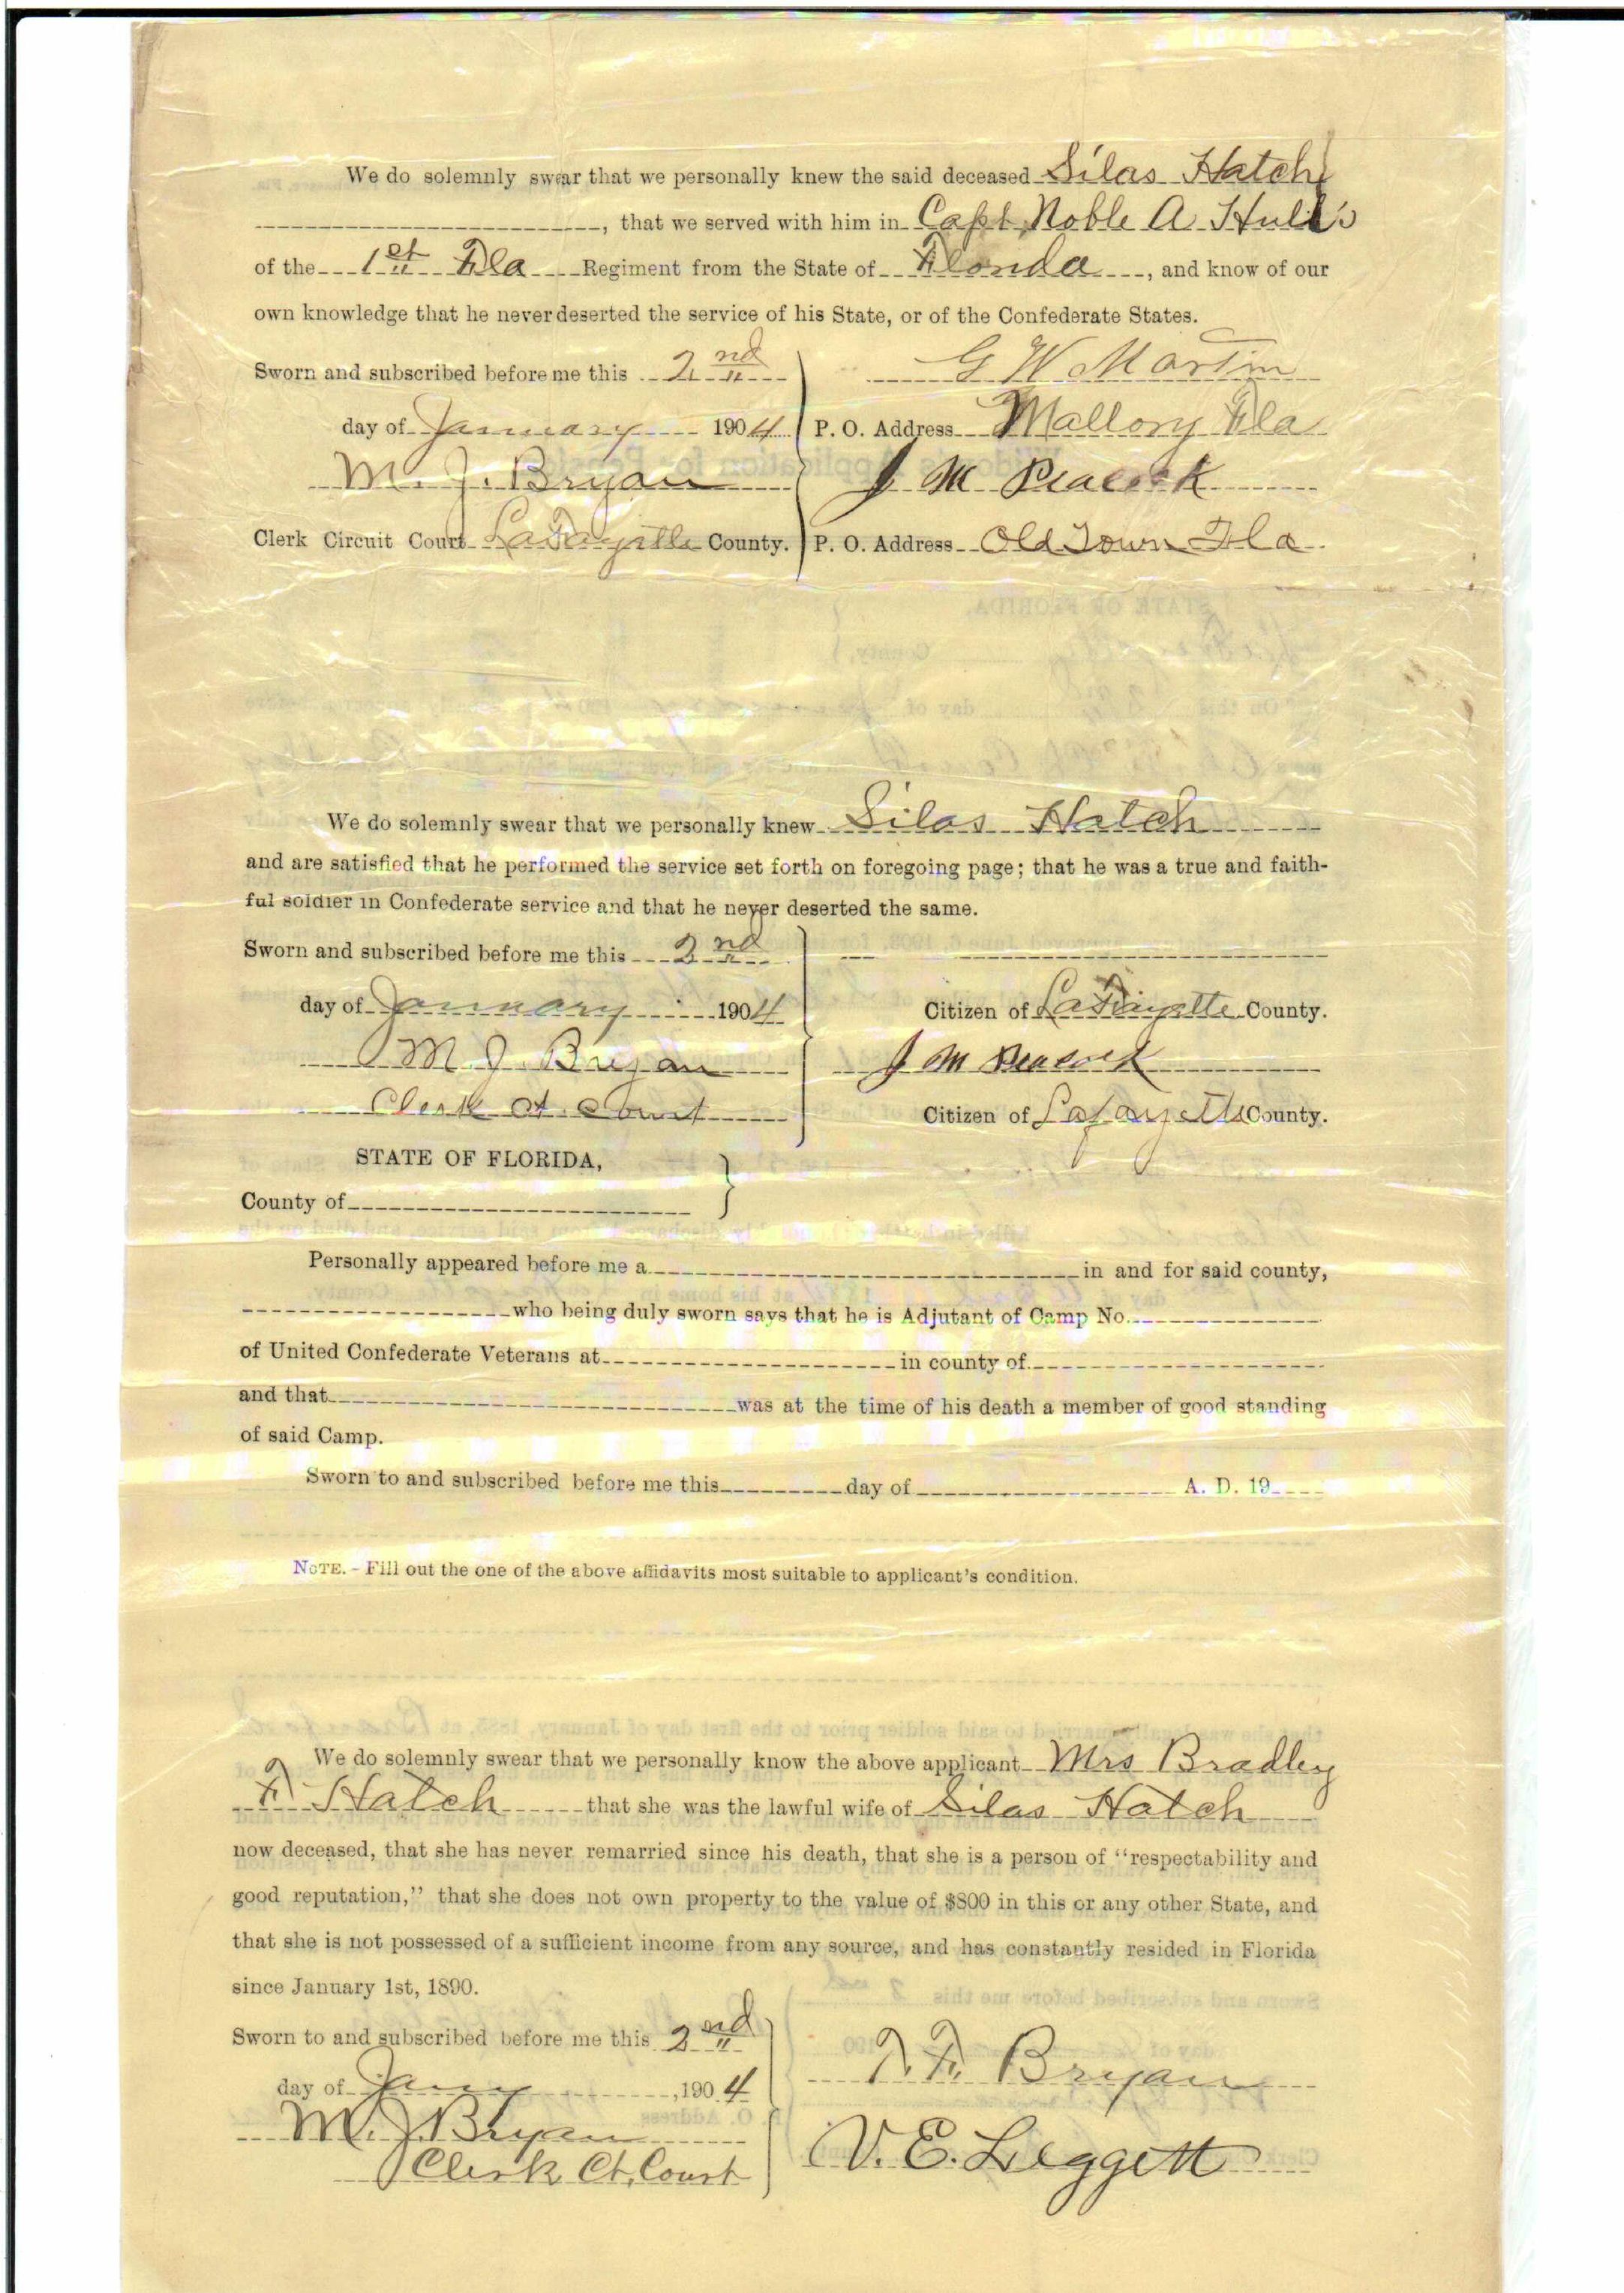 We do solemnly swear that we personally knew the said deceased Silas Hatch
, that we served with him in Capt Noble A Hull's
of the 1st Fla Regiment from the State of Florida, and know of our
own knowledge that he never deserted the service of his State, or of the Confederate States.
Sworn and subscribed before me this 2nd
G W Martin
day of January 1904
P. O. Address Mallory Fla
M. J. Bryan
J M Peacock
Clerk Circuit Court LaFayette County.
P. O. Address Old Town Fla
We do solemnly swear that we personally knew Silas Hatch
and are satisfied that he performed the service set forth on foregoing page; that he was a true and faith-
ful soldier in Confederate service and that he never deserted the same.
Sworn and subscribed before me this 2nd
day of January 1904
Citizen of LaFayette County.
M J. Bryan
J M Peacock
Clerk Ct. Court
Citizen of Lafayette County.
STATE OF FLORIDA,
County of
Personally appeared before me a in and for said county,
who being duly sworn says that he is Adjutant of Camp No.
of United Confederate Veterans at in county of
and that was at the time of his death a member of good standing
of said Camp.
Sworn to and subscribed before me this day of A. D. 19
NOTE. - Fill out the one of the above affidavits most suitable to applicant's condition.
We do solemnly swear that we personally know the above applicant Mrs Bradley
F Hatch that she was the lawful wife of Silas Hatch
now deceased, that she has never remarried since his death, that she is a person of "respectability and
good reputation," that she does not own property to the value of $800 in this or any other State, and
that she is not possessed of a sufficient income from any source, and has constantly resided in Florida
since January 1st, 1890.
Sworn to and subscribed before me this 2nd
day of Jany, 1904
Bryan
M. J. Bryan
V. E. Leggett
Clerk Ct. Court